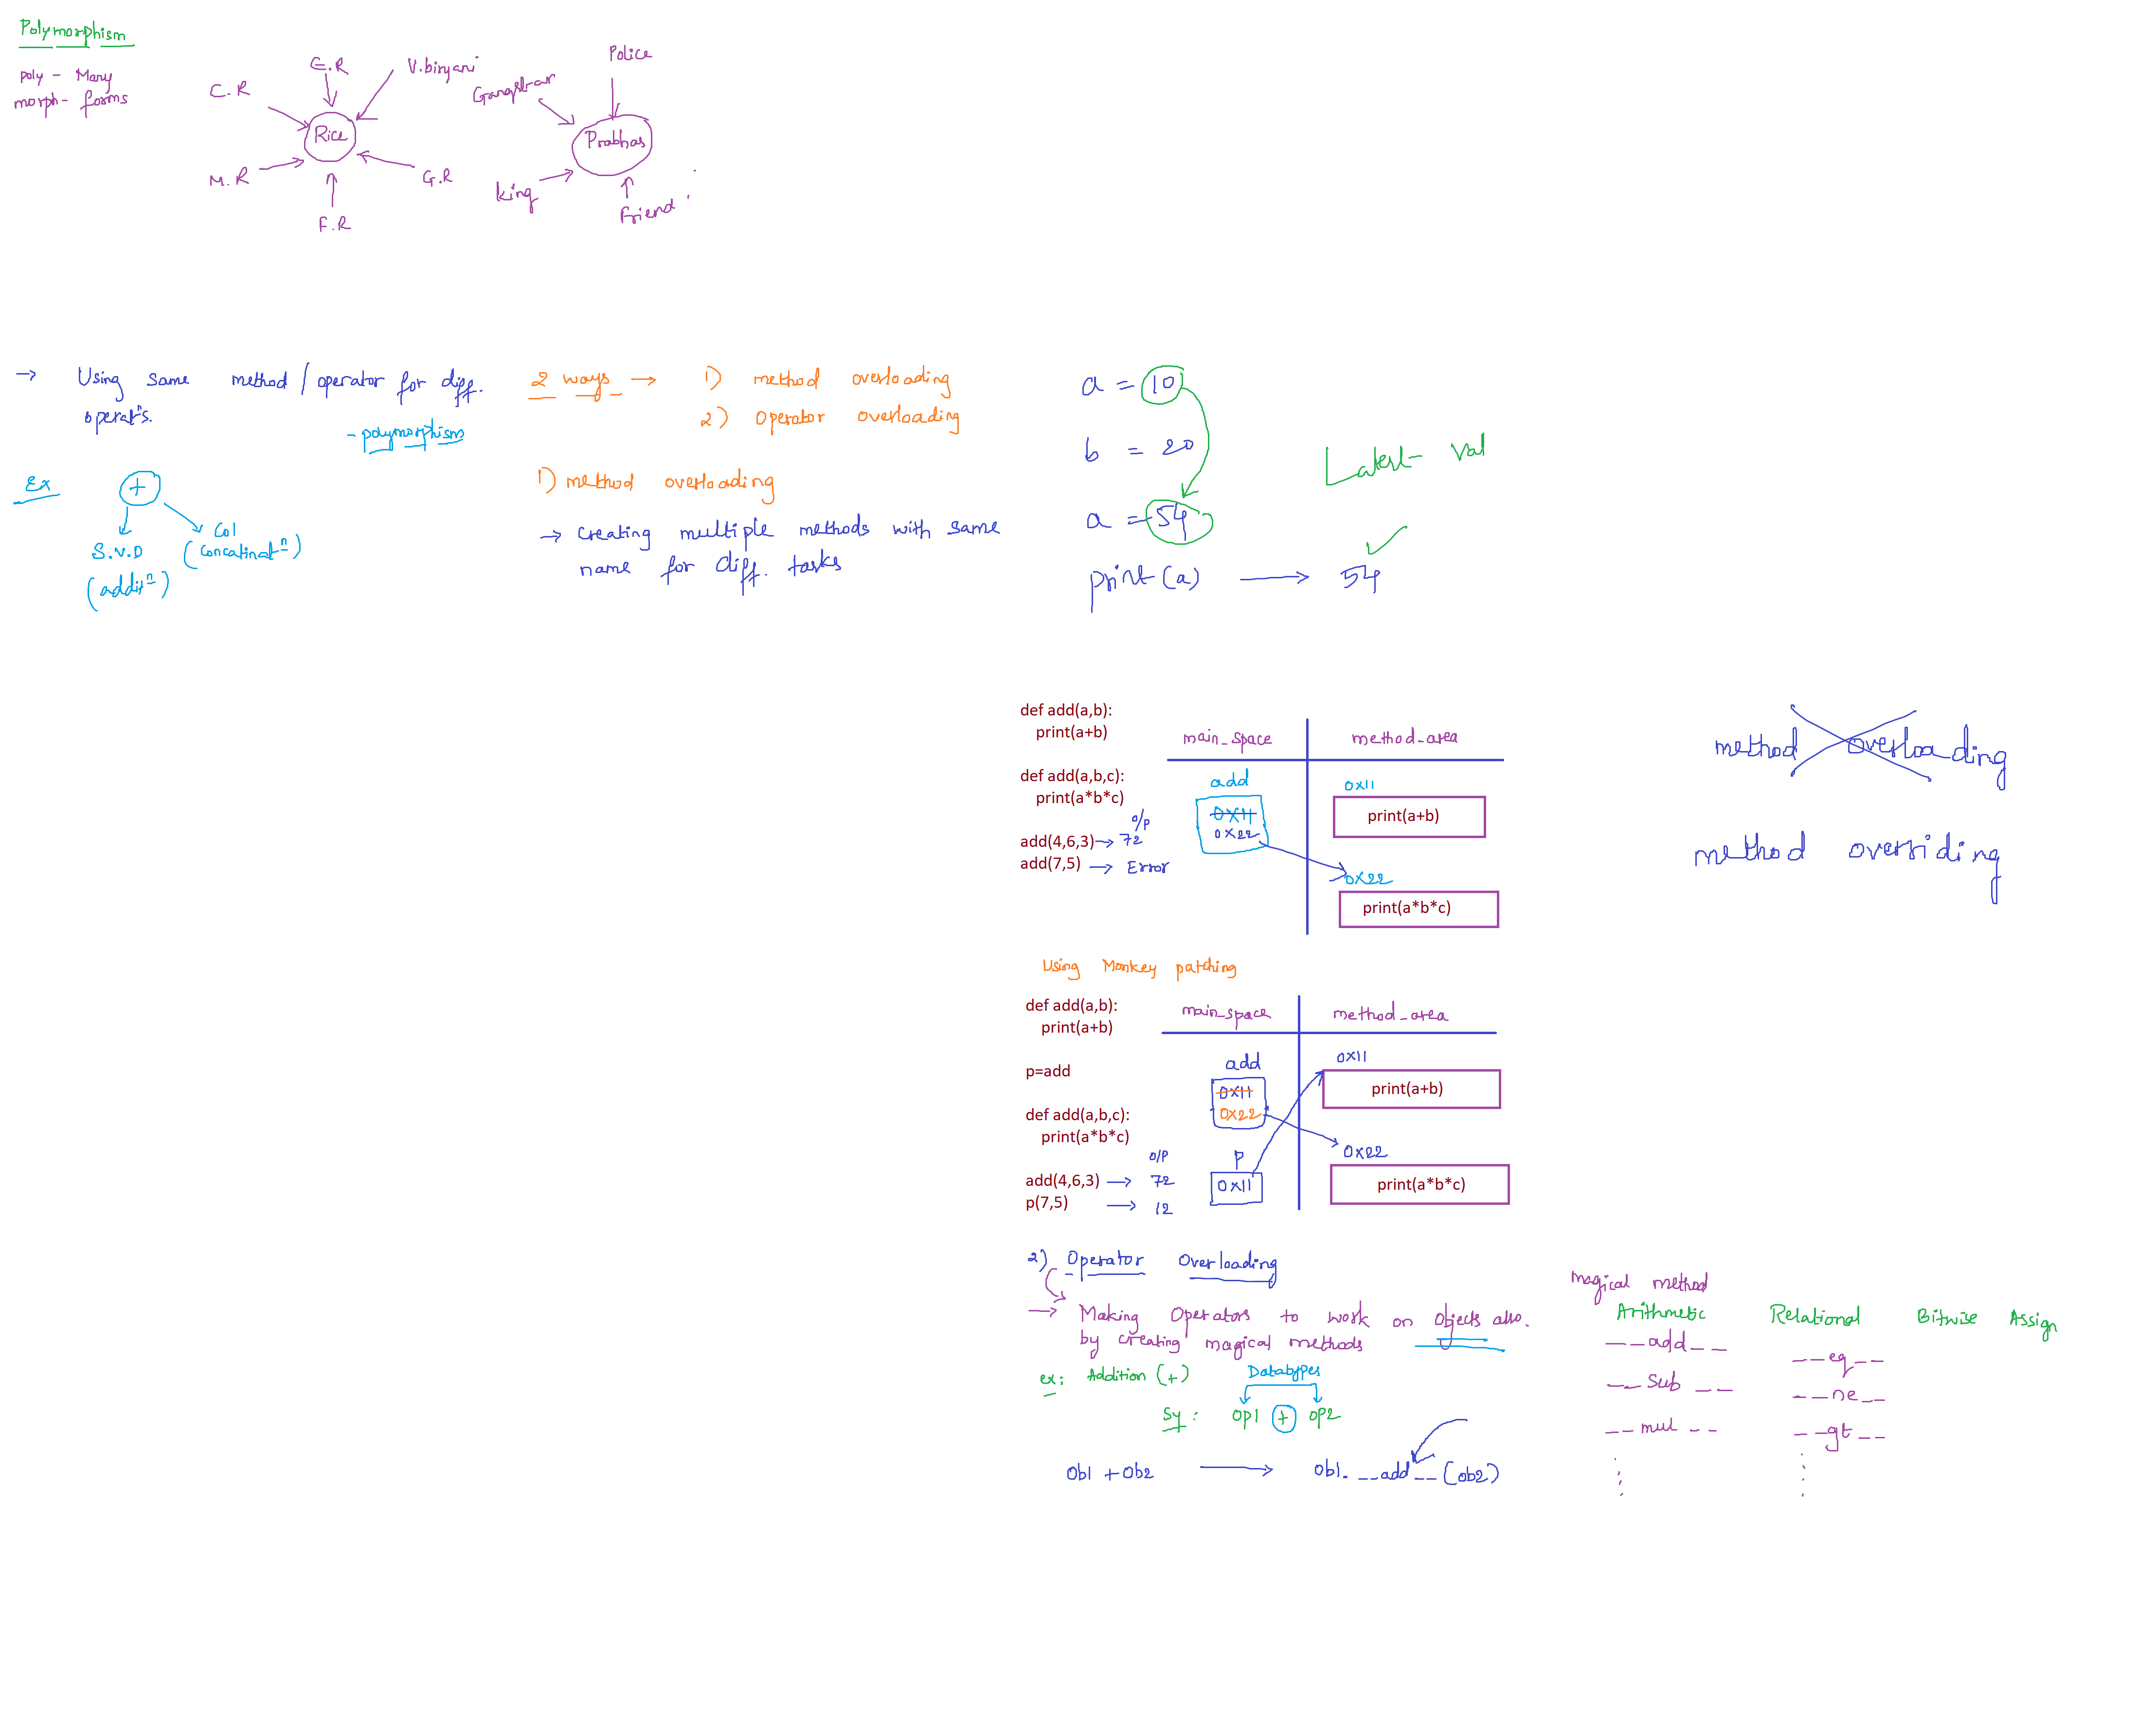 Polymorphism
poly - Many
morph - forms
C.R
E.R
V.biryani
Rice
M.R
F.R
G.R
Gangstar
Police
Prabhas
king
Friend
→ Using same method / operator for diff.
operatns.
- polymorphism
Ex
+
S.V.D
(additn)
Col
(concatinatn)
2 ways → 1) method overloading
2) operator overloading
1) method overloading
→ creating multiple methods with same
name for diff. tasks
a = 10
b = 20
a = 54
print(a) → 54
Latest val
def add(a,b):
print(a+b)
def add(a,b,c):
print(a*b*c)
o/p
add(4,6,3) → 72
add(7,5) → Error
main_space
method_area
add
0x11
0x22
0x11
print(a+b)
0x22
print(a*b*c)
method overloading
method overriding
Using Monkey patching
def add(a,b):
print(a+b)
p=add
def add(a,b,c):
print(a*b*c)
o/p
add(4,6,3) → 72
p(7,5) → 12
main_space
method_area
add
0x11
0x22
p
0x11
0x11
print(a+b)
0x22
print(a*b*c)
2) Operator Overloading
→ Making Operators to work on objects also.
by creating magical methods
ex: Addition (+)
Datatypes
Sy: op1 + op2
Ob1 + Ob2 → Ob1. __add__ (ob2)
magical method
Arithmetic
Relational
Bitwise
Assign
__add__
__sub__
__mul__
__eq__
__ne__
__gt__